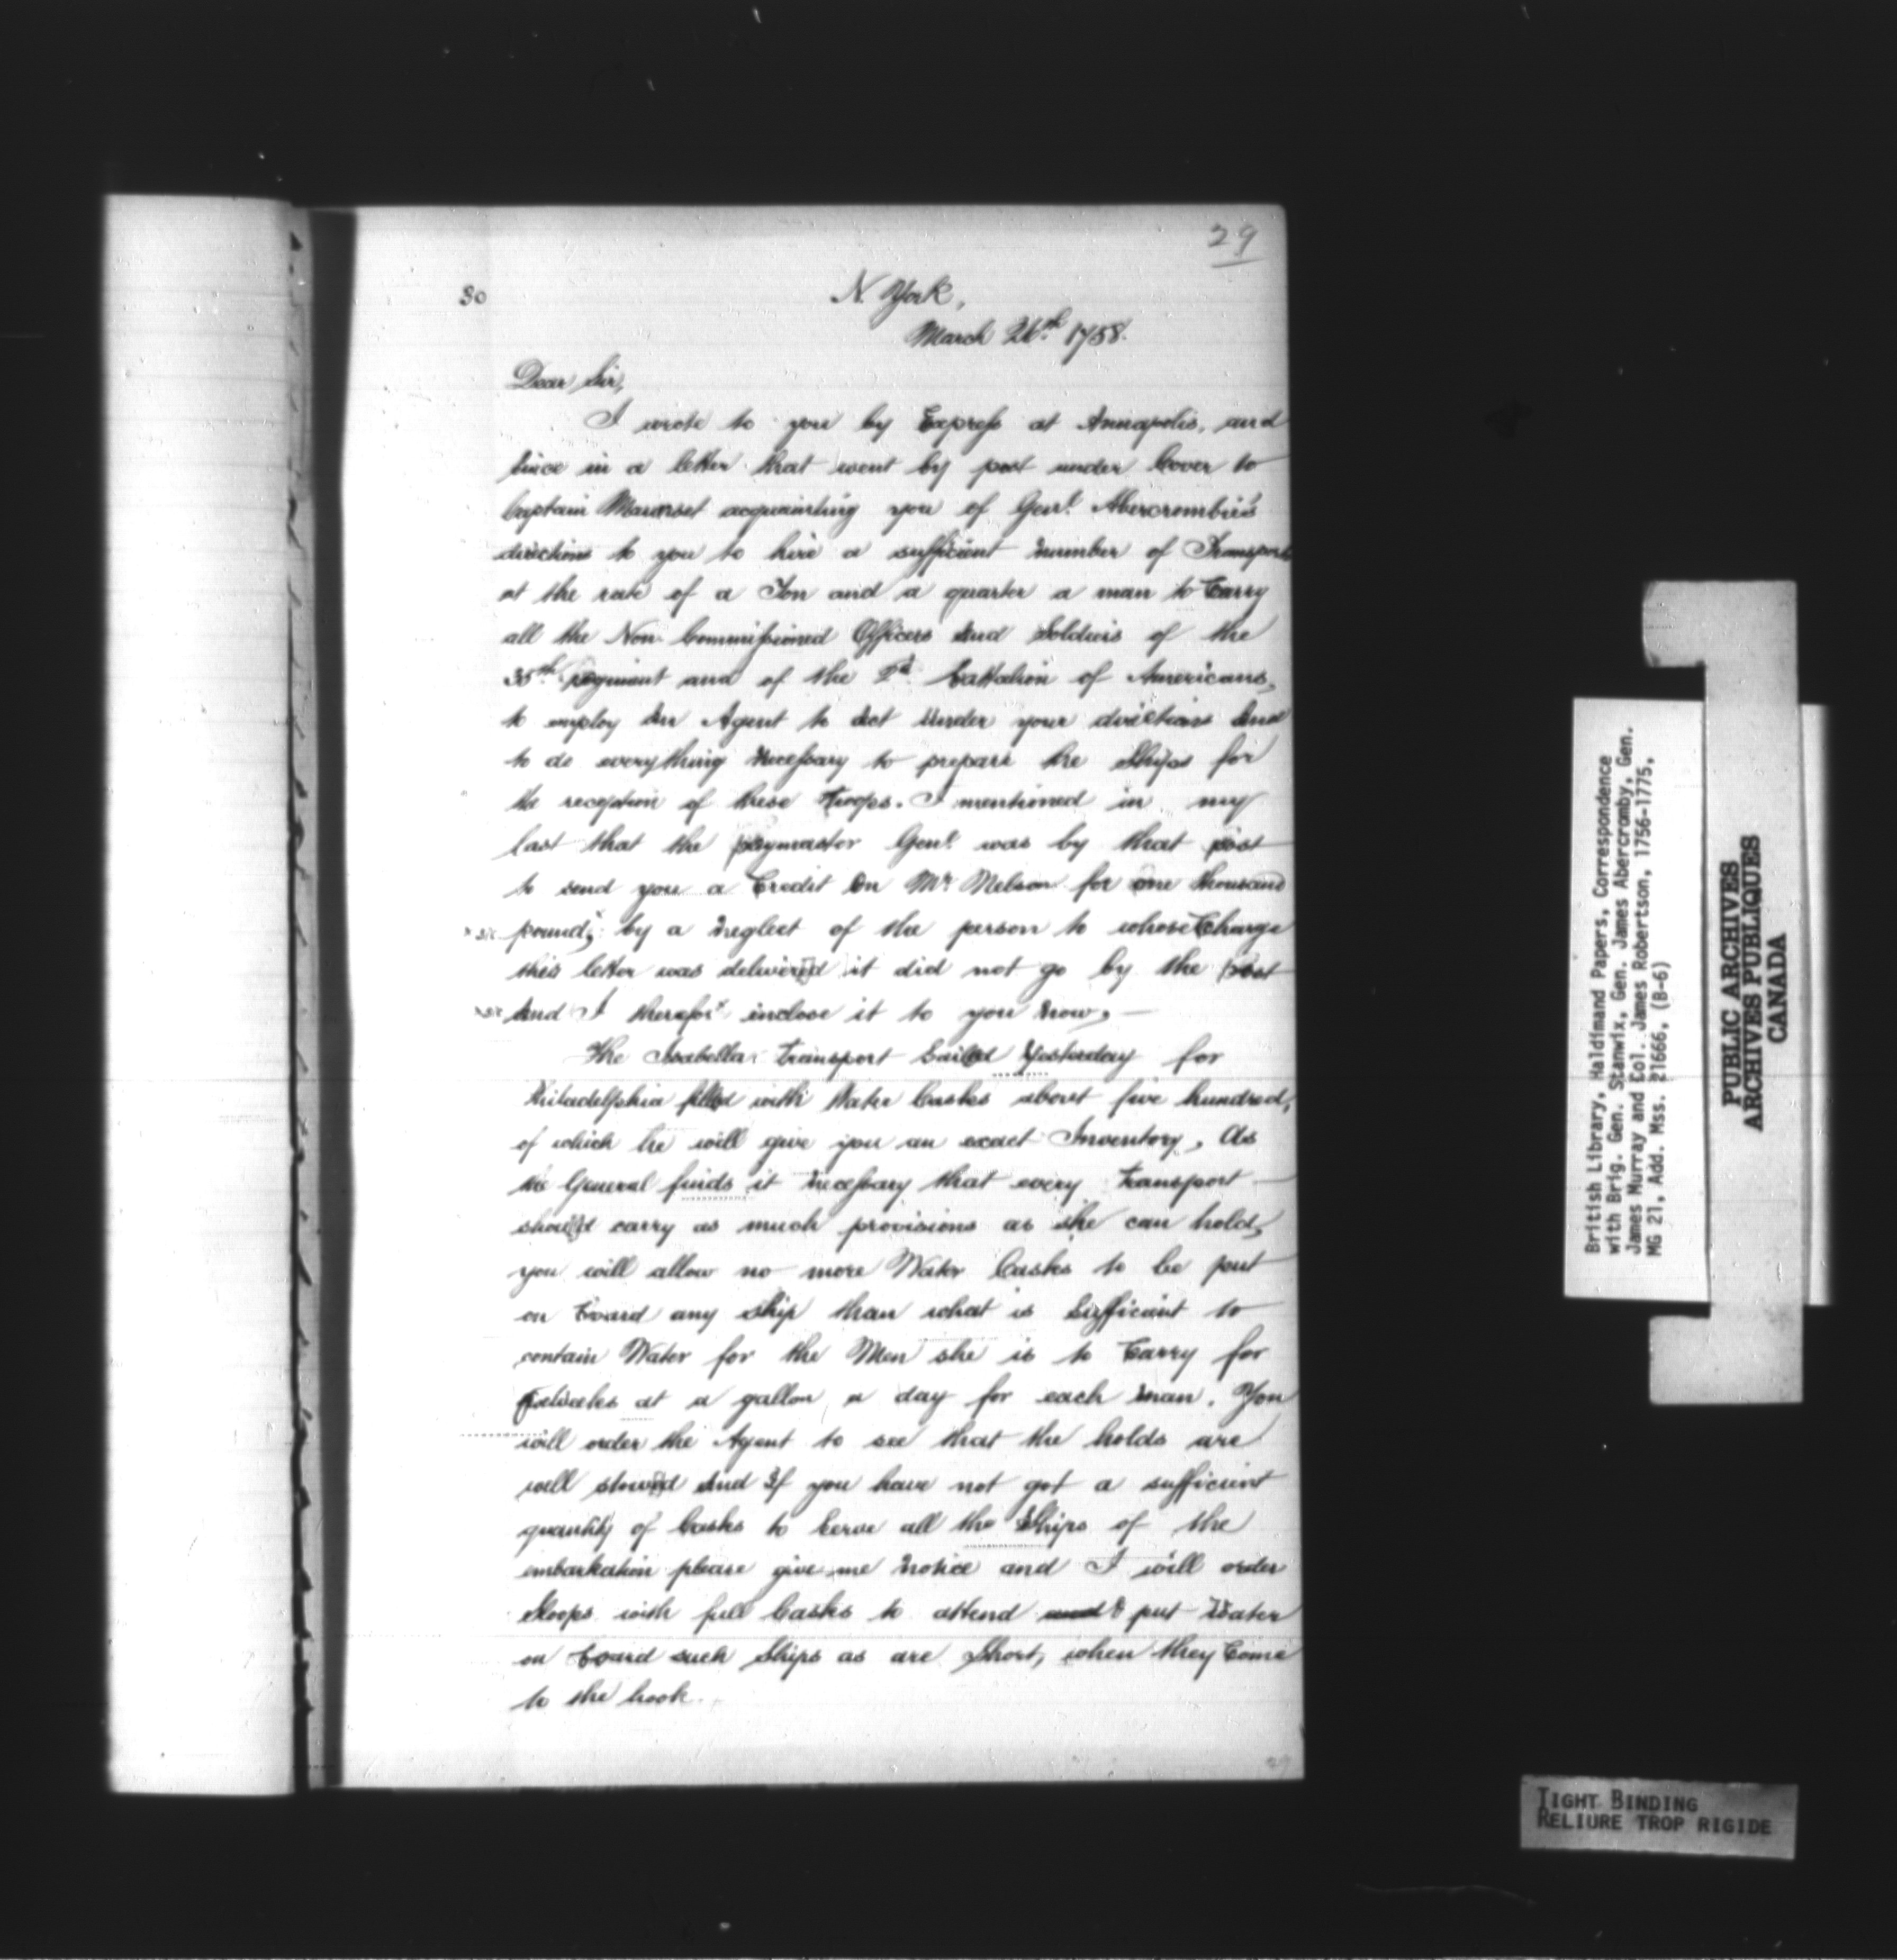 29
30
N. York,
March 26th. 1758.
Dear Sir,
I wrote to you by Express at Annapolis, and
since in a letter that went by post under Cover to
Captain acquainting you of Genl. Abercrombie's
directions to you to hire a sufficient number of Transports
at the rate of a Ton and a quarter a man to Carry
all the Non Commissioned Officers and Soldiers of the
35th regiment and of the 2d. battalion of Americans,
to employ an Agent to act under your directions and
to do everything necessary to prepare the Ships for
the reception of these troops. I mentioned in my
last that the paymaster Genl. was by that post
to send you a Credit on Mr. Nelson for one thousand
x sic pound,x by a neglect of the person to whose Charge
this letter was delivered it did not go by the post
x sic and I therefor x inclose it to you now. —
The Isabella transport Sailed Yesterday for
Philadelphia filled with Water Casks about five hundred,
of which he will give you an exact Inventory. As
the General finds it necessary that every transport
should carry as much provisions as she can hold,
you will allow no more Water Casks to be put
on board any ship than what is Sufficient to
contain Water for the Men she is to Carry for
at a gallon a day for each man. You
will order the Agent to see that the holds are
well stowed and if you have not got a sufficient
quantity of Casks to serve all the Ships of the
embarkation please give me notice and I will order
Sloops with full Casks to attend & put Water
on board such Ships as are Short, when they Come
to the hook.
British Library, Haldimand Papers, Correspondence
with Brig. Gen. Stanwix, Gen. James Abercromby, Gen.
James Murray and Col. James Robertson, 1756-1775,
MG 21, Add. Mss. 21666, (B-6)
PUBLIC ARCHIVES
ARCHIVES PUBLIQUES
CANADA
TIGHT BINDING
RELIURE TROP RIGIDE